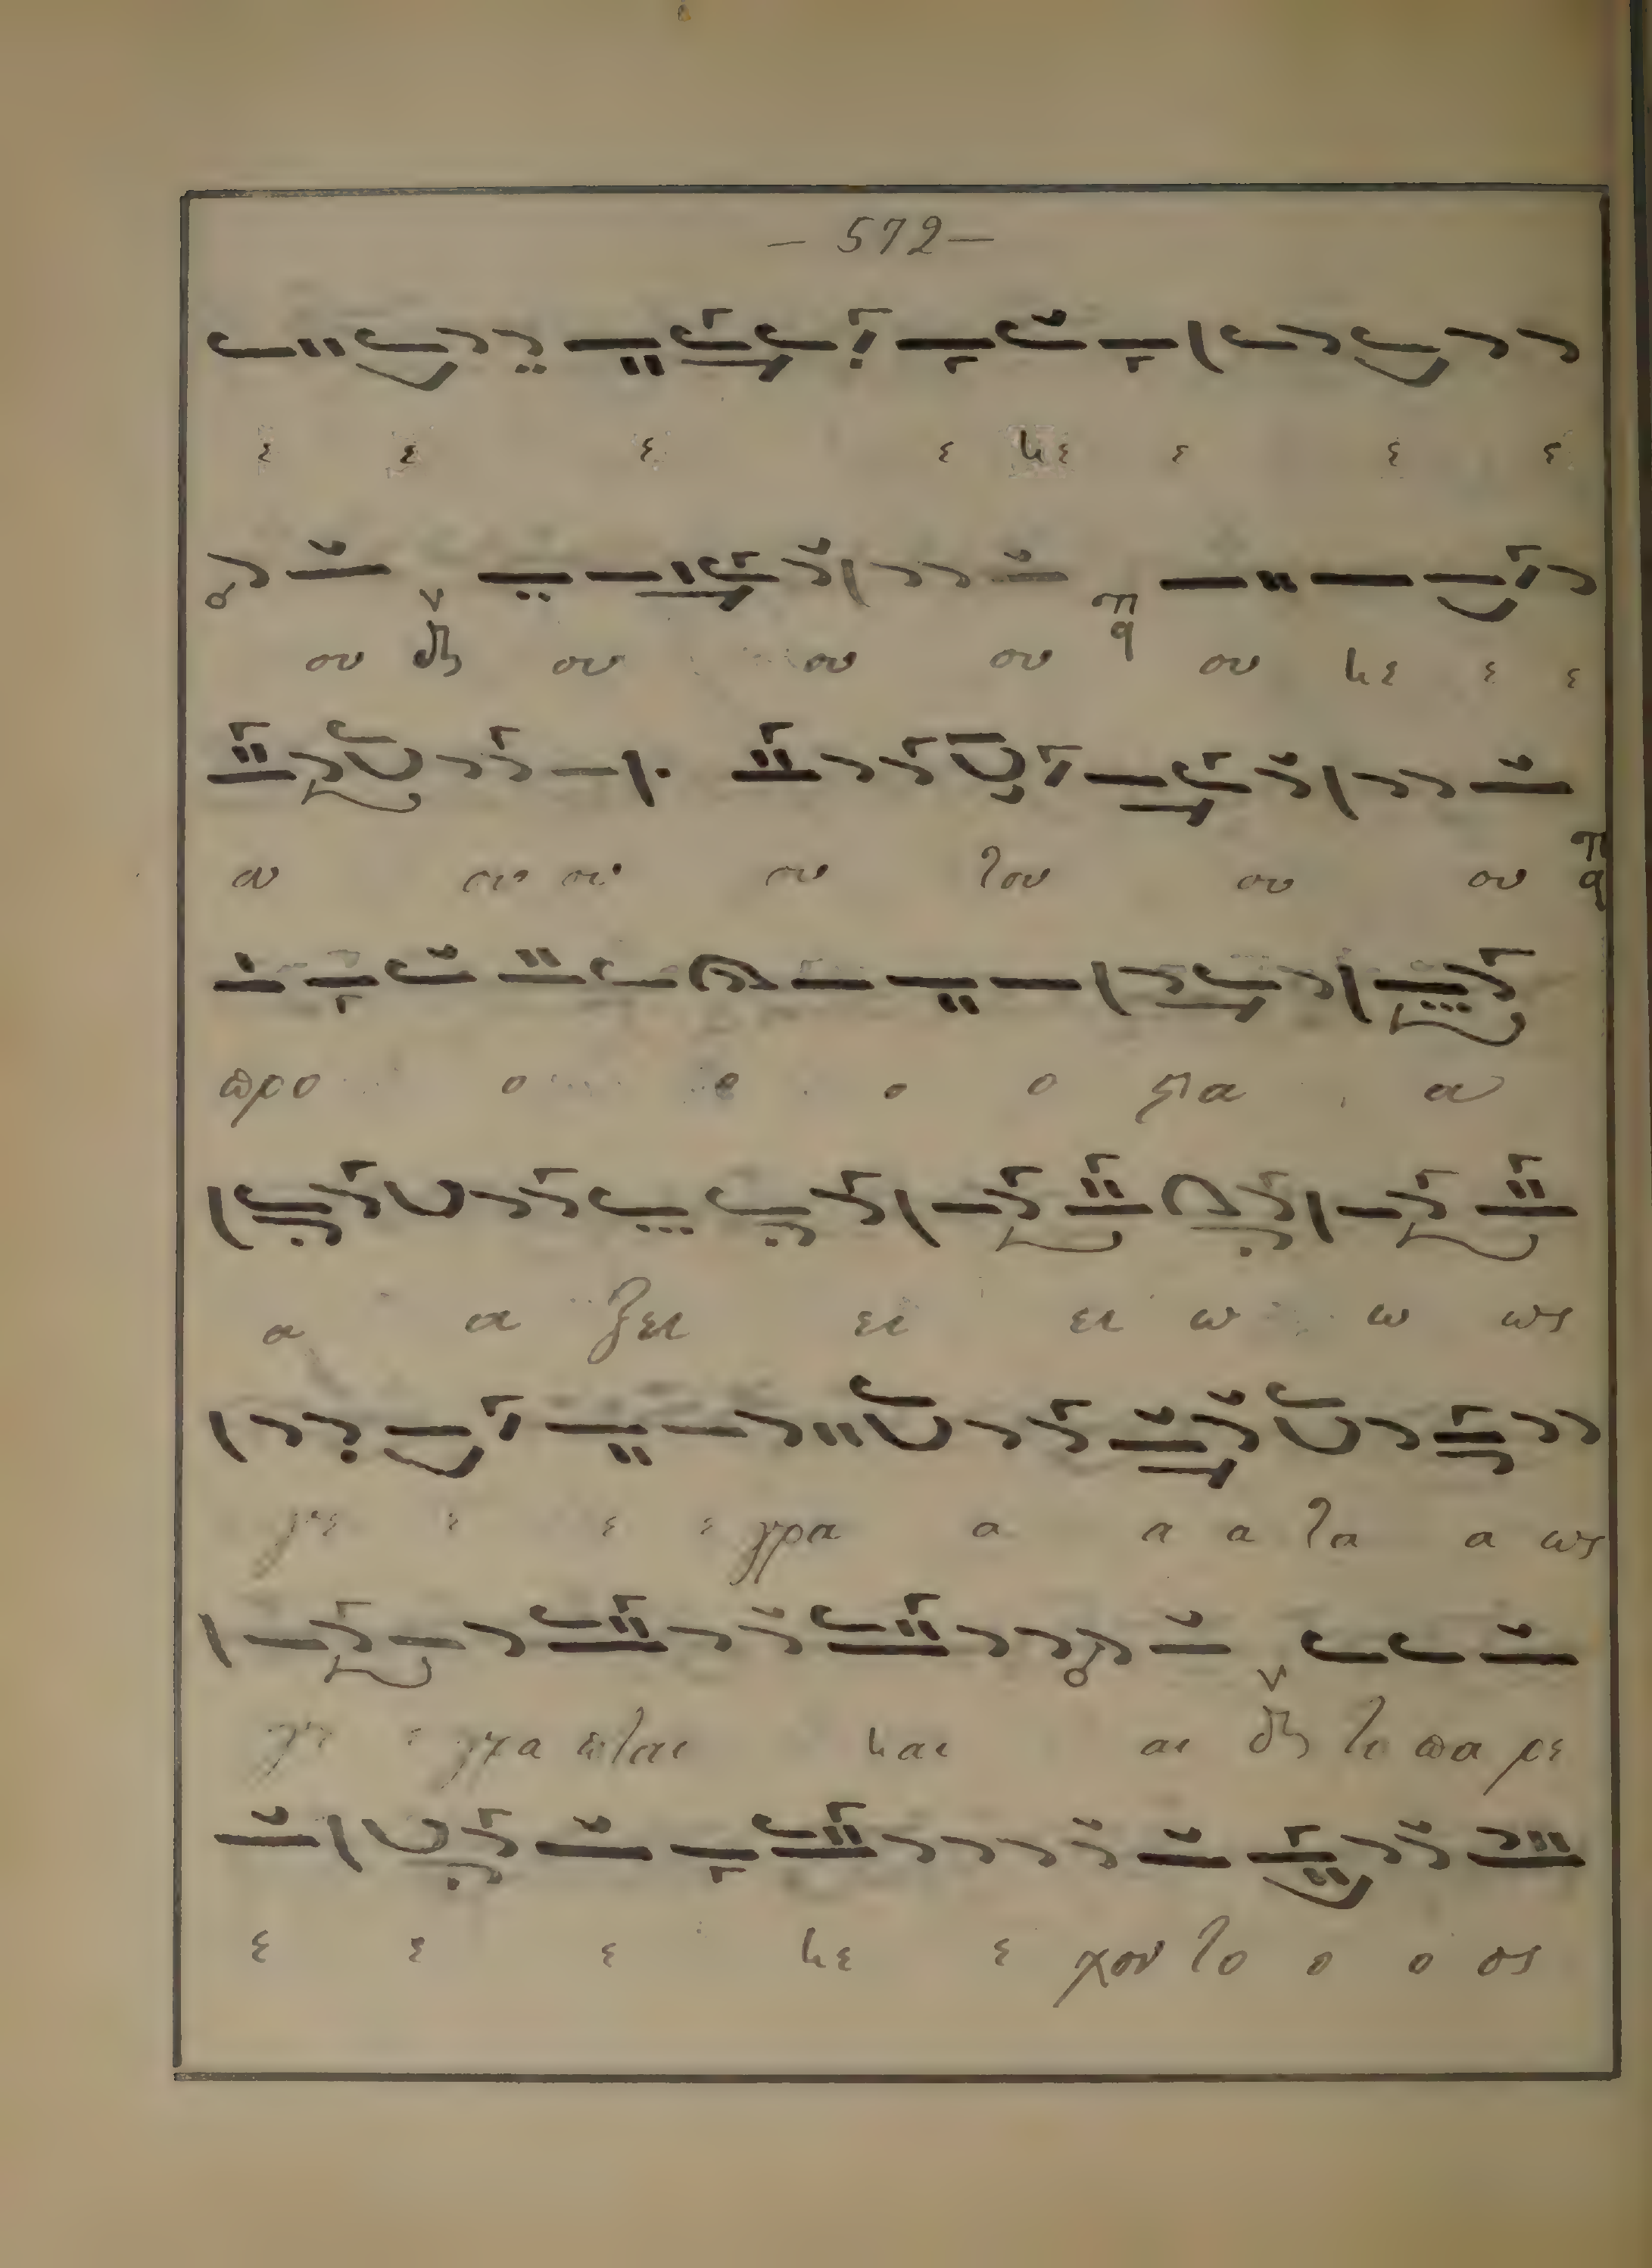 – 572 –
ε ε ε ε κε ε ε ε
ου δι ου ου ου πα ου κε ε ε
ου ου ου ου του ου ου πα
προ ο ο ο ο στα α
α α ξει ει ει ω ω ως
γε ε ε ε γρα α α α τα α ως
γε ε γρα πται και αι δι το πα ρε
ε ε ε κε ε χον το ο ο ος